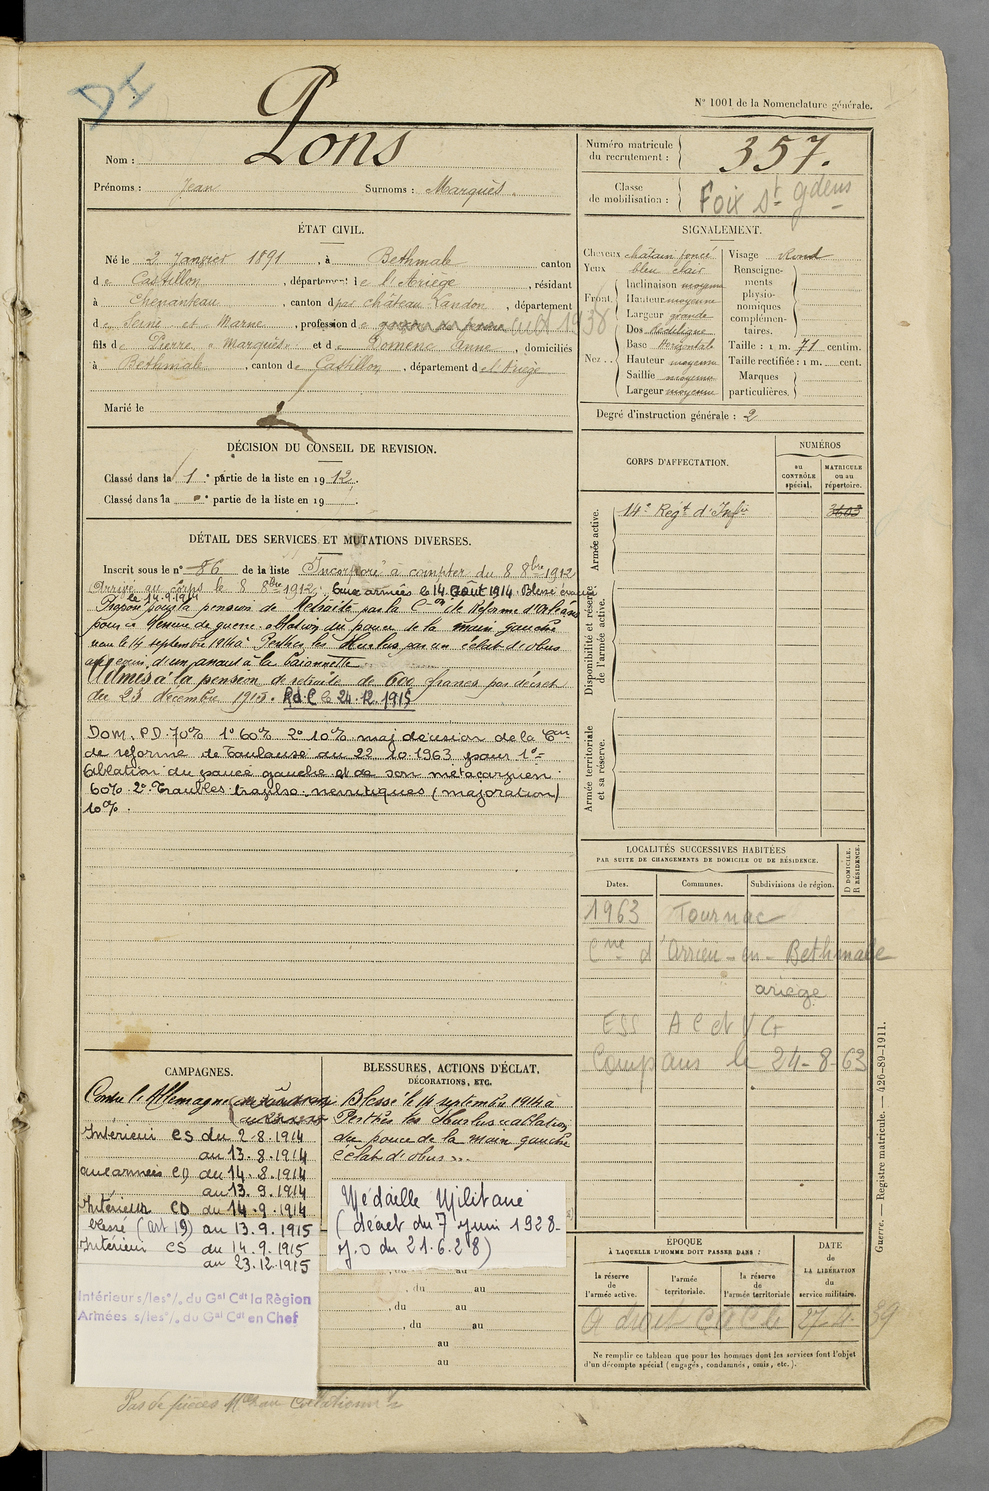 N° 1001 de la Nomenclature générale.
Nom : Pons
Prénoms : Jean Surnoms : Marquès.
ÉTAT CIVIL.
Né le 2 Janvier 1891, à Bethmale canton
de Castillon, département de l'Ariège, résidant
à Chenanteau, canton de Château Landon, département
de Seine et Marne, profession de cult 1938
fils de Pierre "Marquès" et de Domenc Anne, domiciliés
à Bethmale, canton de Castillon, département de l'Ariège
Marié le
DÉCISION DU CONSEIL DE REVISION.
Classé dans la 1e partie de la liste en 1912.
Classé dans la e partie de la liste en 19
DÉTAIL DES SERVICES ET MUTATIONS DIVERSES.
Inscrit sous le n° 86 de la liste Incorporé à compter du 8 8bre 1912
Arrivé au corps le 8 8bre 1912; Aux armées le 14 Août 1914. Blessé évacué
le 14.9.1914
Proposé pour la pension de Retraite par la Con de Réforme d'Orléans
pour : blessure de guerre. ablation du pouce de la main gauche
reçue le 14 septembre 1914 à Perthes les Hurlus par un éclat d'obus
au cours d'un assaut à la baionnette
Admis à la pension de retraite de 600 francs par décret
du 23 décembre 1915. R.d.C le 24.12.1915
Dom. P.D. 70% 1° 60% 2° 10% maj décision de la Con
de réforme de Toulouse du 22 10 1963 pour 1°
Ablation du pouce gauche et de son métacarpien :
60% 2° Troubles névritiques (majoration)
10%.
CAMPAGNES.
Contre l'Allemagne
Intérieur CS du 2.8.1914
au 13.8.1914
aux armées CD du 14.8.1914
au 13.9.1914
Intérieur CD du 14.9.1914
blessé (art 19) au 13.9.1915
Intérieur CS du 14.9.1915
au 23.12.1915
Intérieur s/les °/. du Gal Cdt la Règion
Armées s/les °/. du Gal Cdt en Chef
BLESSURES, ACTIONS D'ÉCLAT,
DÉCORATIONS, ETC.
Blessé le 14 septembre 1914 à
Perthes les Hurlus "ablation
du pouce de la main gauche
éclat d'obus"
Médaille Militaire
(décret du 7 Juin 1928-
J.O du 21.6.28)
, du au
, du au
, du au
au
au
Pas de pièces
Numéro matricule
du recrutement : 357.
Classe
de mobilisation : Foix St Gdens
SIGNALEMENT.
Cheveux châtain foncé Visage Rond
Yeux bleu clair
Front. Inclinaison moyenne
Hauteur moyenne
Largeur grande
Nez.. Dos Rectiligne
Base Horizontale
Hauteur moyenne
Saillie moyenne
Largeur moyenne
Renseigne-
ments
physio-
nomiques
complémen-
taires.
Taille : 1 m. 71 centim.
Taille rectifiée : 1 m. cent.
Marques
particulières.
Degré d'instruction générale : 2
CORPS D'AFFECTATION.
NUMÉROS
au
CONTRÔLE
spécial.
MATRICULE
ou au
répertoire.
Armée active.
14e Regt d'Infie
3603
Disponibilité et réserve
de l'armée active.
Armée territoriale
et sa réserve.
LOCALITÉS SUCCESSIVES HABITÉES
PAR SUITE DE CHANGEMENTS DE DOMICILE OU DE RÉSIDENCE.
Dates. Communes. Subdivisions de région.
D DOMICILE.
R RÉSIDENCE.
1963 Tournac
Cne d'Arrien-en-Bethmale
ariège
ESS AC et VG
Compans le 24-8-63
ÉPOQUE
À LAQUELLE L'HOMME DOIT PASSER DANS :
la réserve
de
l'armée active.
l'armée
territoriale.
la réserve
de
l'armée territoriale
DATE
de
LA LIBÉRATION
du
service militaire.
A droit 27-4-39
Ne remplir ce tableau que pour les hommes dont les services font l'objet
d'un décompte spécial (engagés, condamnés, omis, etc.).
Guerre. — Registre matricule. — 426-89-1911.